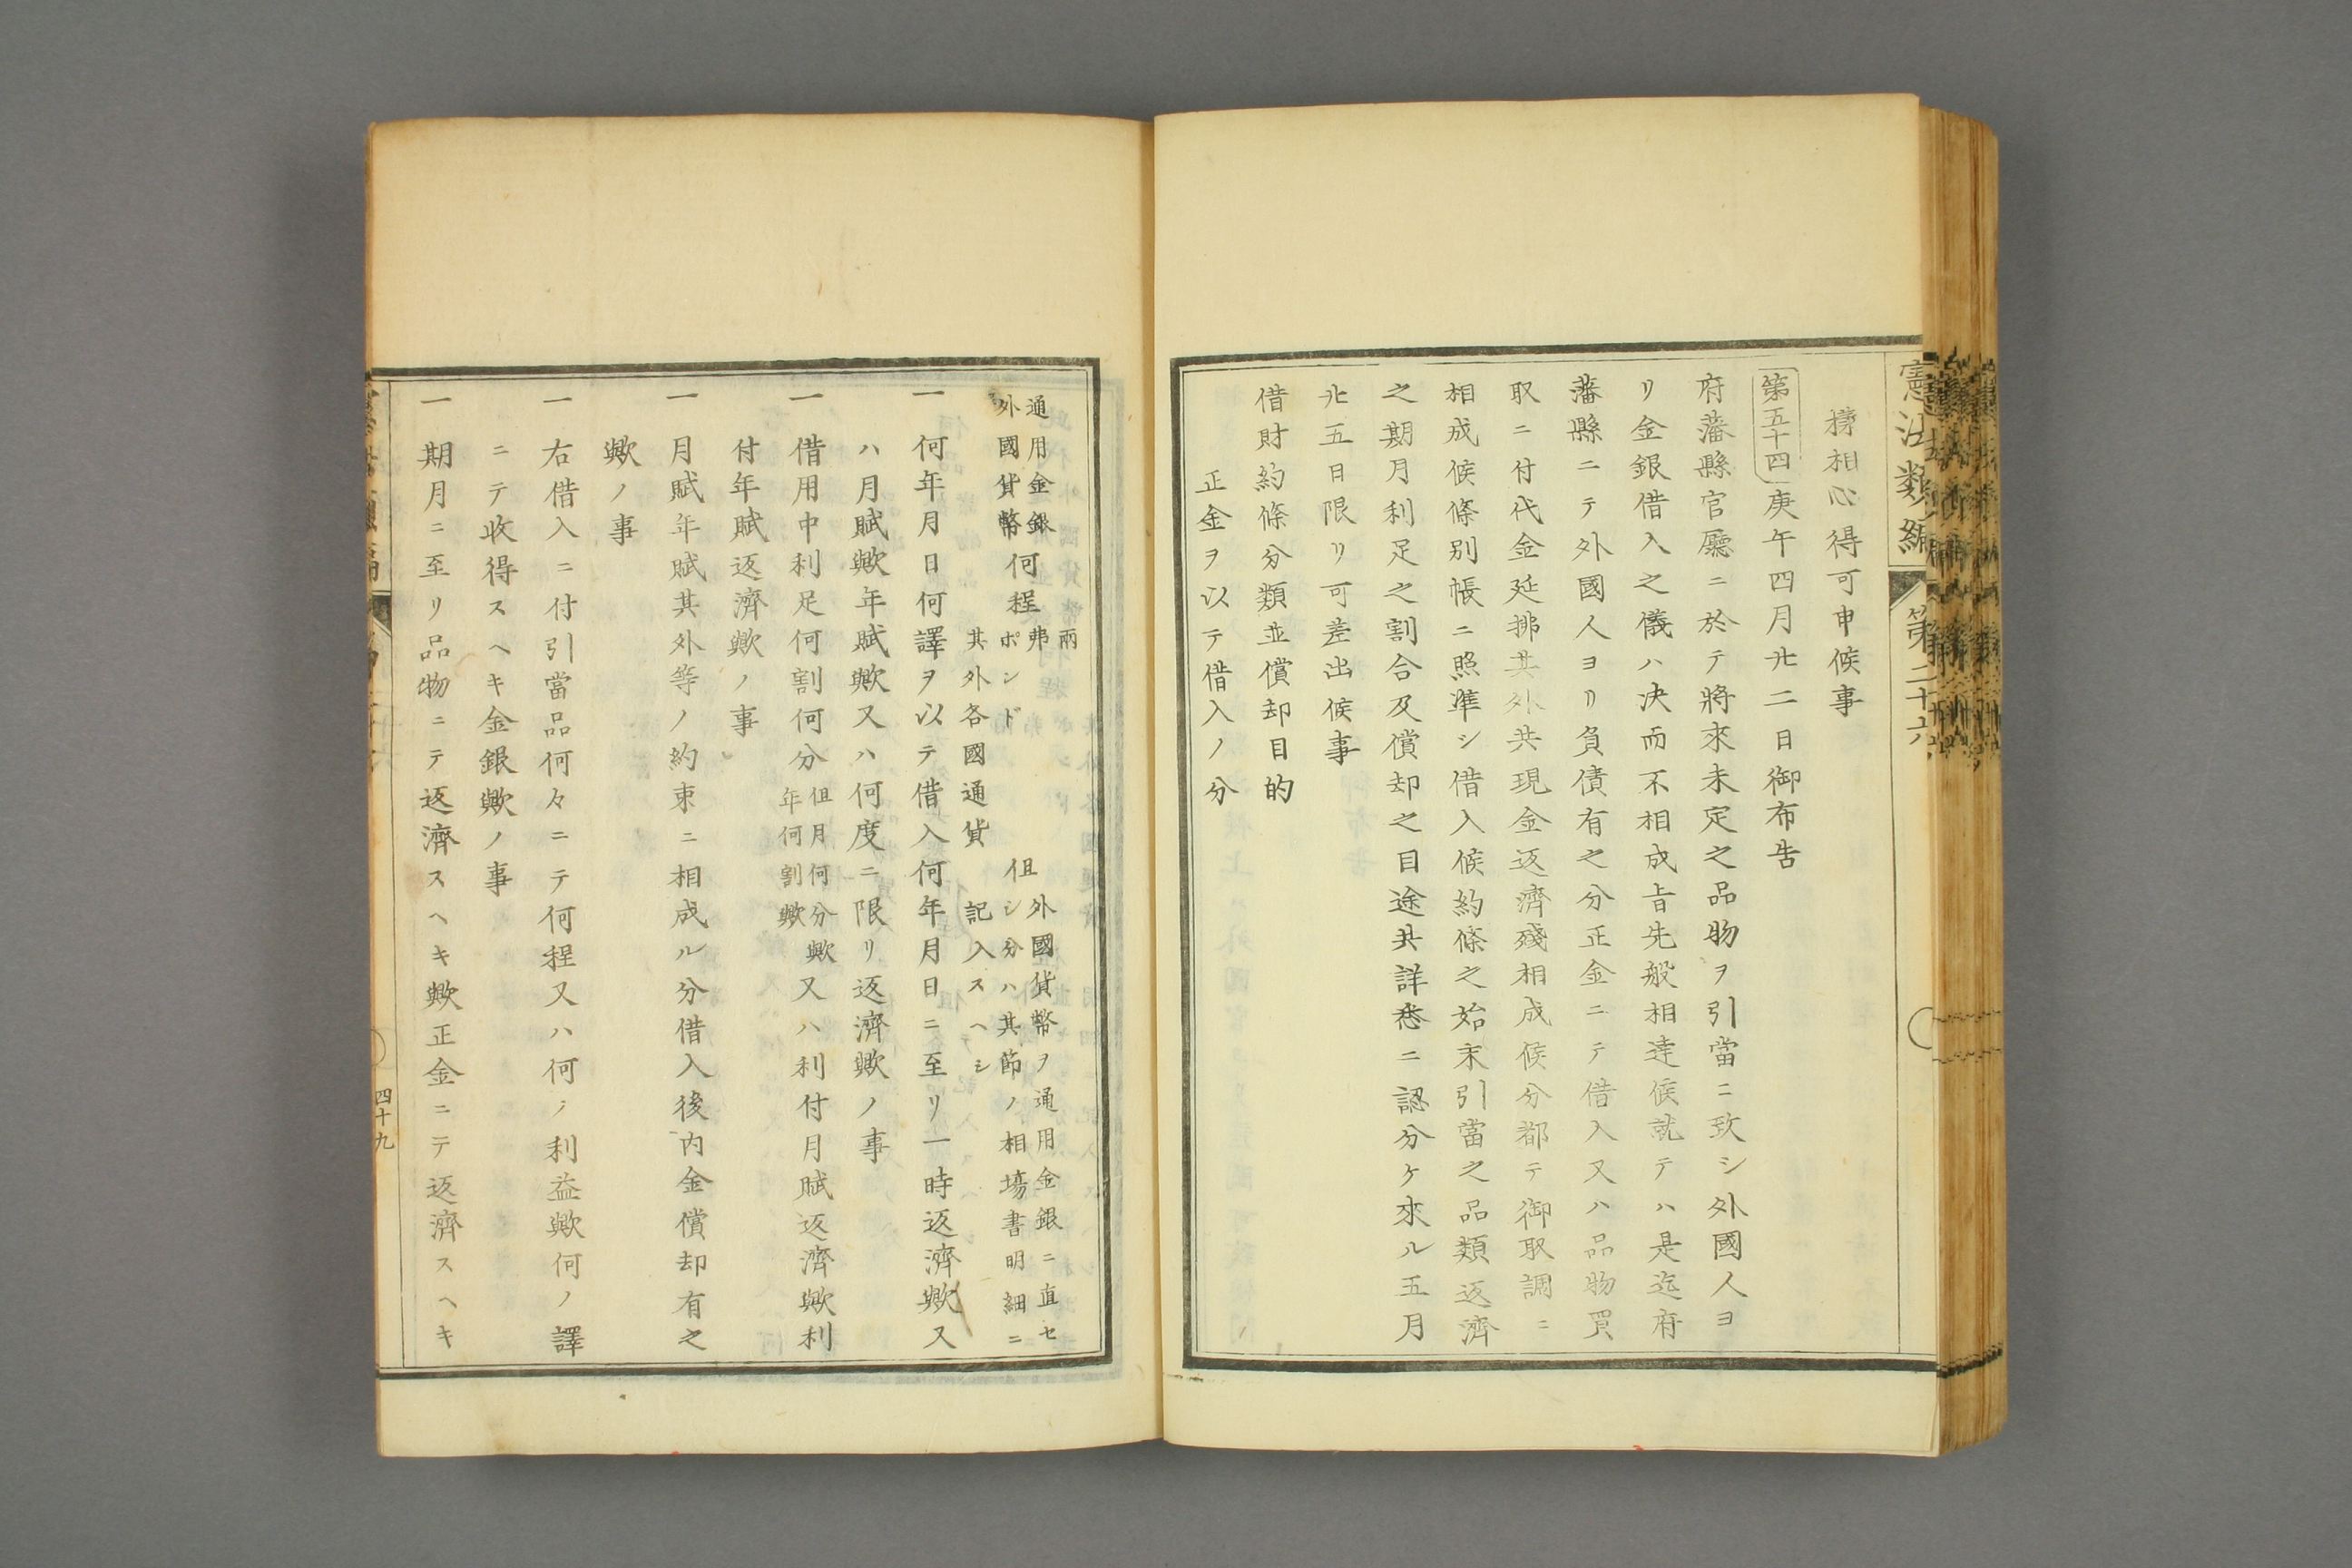 憲法類編 第二十六
様相心得可申候事
第五十四 庚午四月廿二日御布告
府藩縣官廳ニ於テ將來未定之品物ヲ引當ニ致シ外國人ヨ
リ金銀借入之儀ハ決而不相成旨先般相達候就テハ是迄府
藩縣ニテ外國人ヨリ負債有之分正金ニテ借入又ハ品物買
取ニ付代金延拂其外共現金返濟殘相成候分都テ御取調ニ
相成候條別帳ニ照準シ借入候約條之始末引當之品類返濟
之期月利足之割合及償却之目途共詳悉ニ認分ケ來ル五月
廿五日限リ可差出候事
借財約條分類並償却目的
正金ヲ以テ借入ノ分
通用金銀
外國貨幣
何程
兩
弗
ポンド
其外各國通貨
但外國貨幣ヲ通用金銀ニ直セ
シ分ハ其節ノ相場書明細ニ
記入スヘシ
一 何年月日何譯ヲ以テ借入何年月日ニ至リ一時返濟歟又
ハ月賦歟年賦歟又ハ何度ニ限リ返濟歟ノ事
一 借用中利足何割何分 但月何分歟 年何割歟 又ハ利付月賦返濟歟利
付年賦返濟歟ノ事
一 月賦年賦其外等ノ約束ニ相成ル分借入後內金償却有之
歟ノ事
一 右借入ニ付引當品何々ニテ何程又ハ何ノ利益歟何ノ譯
ニテ收得スヘキ金銀歟ノ事
一 期月ニ至リ品物ニテ返濟スヘキ歟正金ニテ返濟スヘキ
四十九